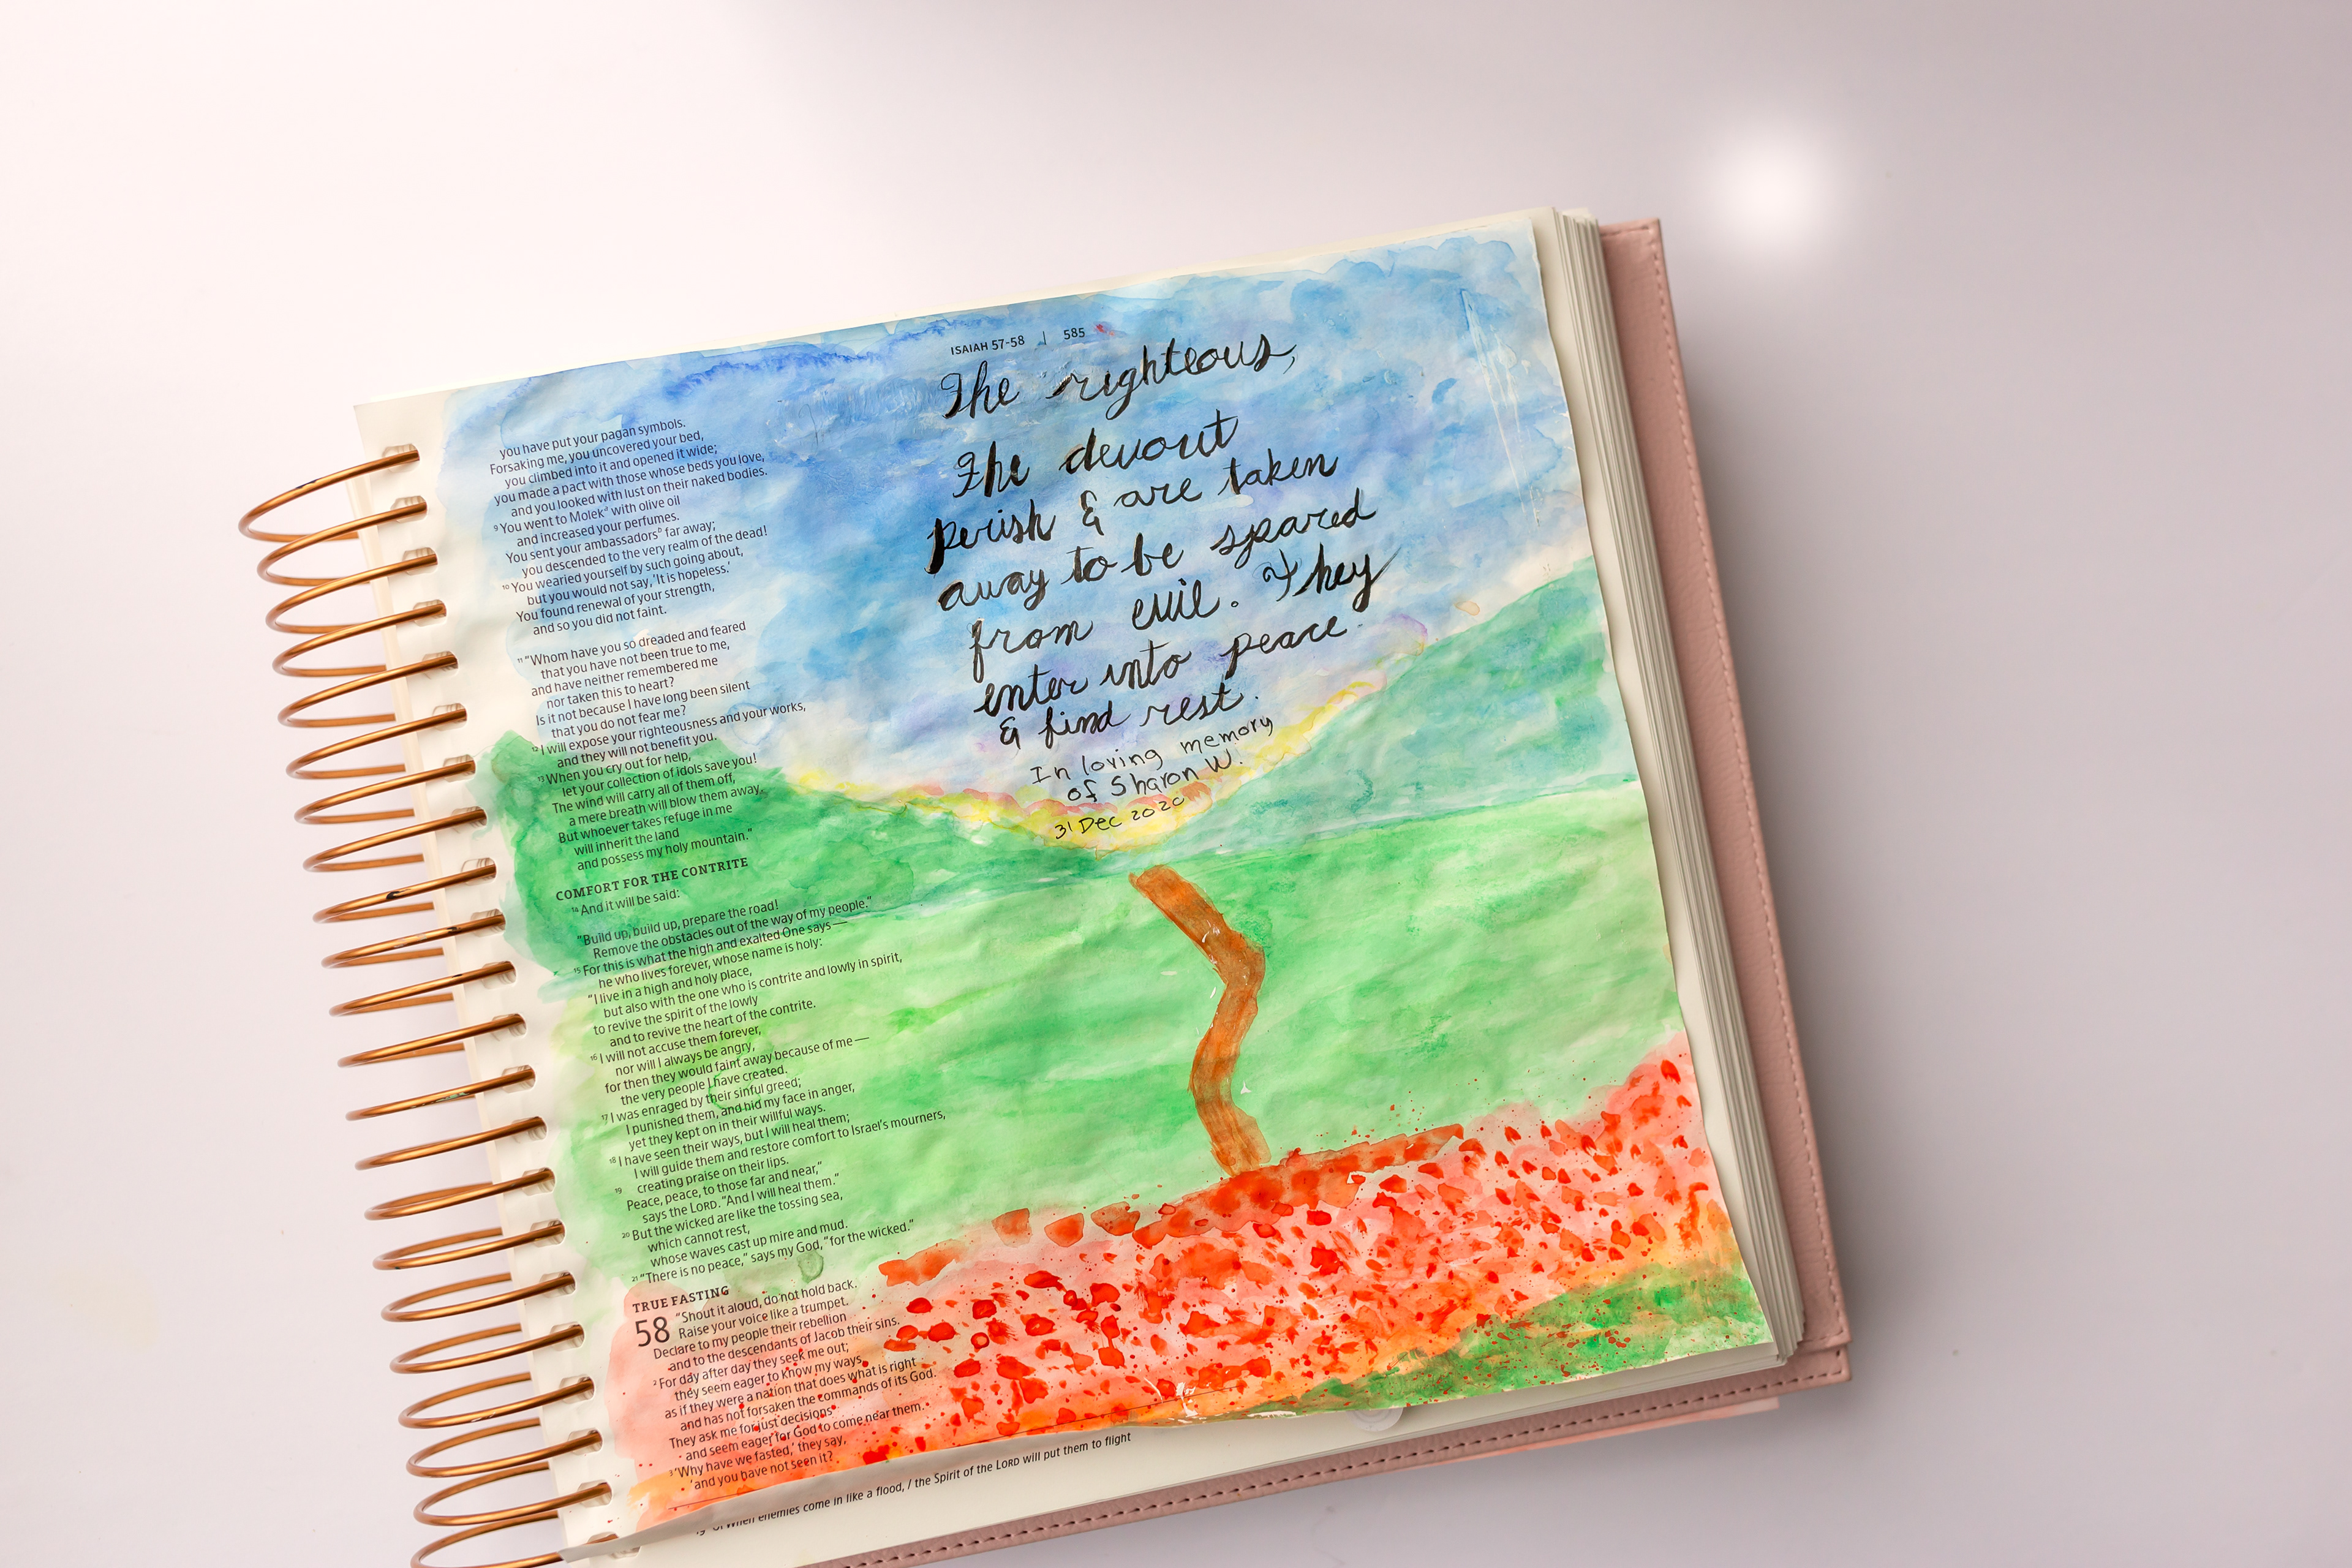 ISAIAH 57-58 | 585
you have put your pagan symbols.
Forsaking me, you uncovered your bed,
you climbed into it and opened it wide;
you made a pact with those whose beds you love,
and you looked with lust on their naked bodies.
9 You went to Molekᵃ with olive oil
and increased your perfumes.
You sent your ambassadorsᵇ far away;
you descended to the very realm of the dead!
10 You wearied yourself by such going about,
but you would not say, 'It is hopeless.'
You found renewal of your strength,
and so you did not faint.
11 "Whom have you so dreaded and feared
that you have not been true to me,
and have neither remembered me
nor taken this to heart?
Is it not because I have long been silent
that you do not fear me?
12 I will expose your righteousness and your works,
and they will not benefit you.
13 When you cry out for help,
let your collection of idols save you!
The wind will carry all of them off,
a mere breath will blow them away.
But whoever takes refuge in me
will inherit the land
and possess my holy mountain."
COMFORT FOR THE CONTRITE
14 And it will be said:
"Build up, build up, prepare the road!
Remove the obstacles out of the way of my people."
15 For this is what the high and exalted One says —
he who lives forever, whose name is holy:
"I live in a high and holy place,
but also with the one who is contrite and lowly in spirit,
to revive the spirit of the lowly
and to revive the heart of the contrite.
16 I will not accuse them forever,
nor will I always be angry,
for then they would faint away because of me —
the very people I have created.
17 I was enraged by their sinful greed;
I punished them, and hid my face in anger,
yet they kept on in their willful ways.
18 I have seen their ways, but I will heal them;
I will guide them and restore comfort to Israel's mourners,
19 creating praise on their lips.
Peace, peace, to those far and near,"
says the LORD. "And I will heal them."
20 But the wicked are like the tossing sea,
which cannot rest,
whose waves cast up mire and mud.
21 "There is no peace," says my God, "for the wicked."
TRUE FASTING
58 "Shout it aloud, do not hold back.
Raise your voice like a trumpet.
Declare to my people their rebellion
and to the descendants of Jacob their sins.
2 For day after day they seek me out;
they seem eager to know my ways,
as if they were a nation that does what is right
and has not forsaken the commands of its God.
They ask me for just decisions
and seem eager for God to come near them.
3 'Why have we fasted,' they say,
'and you have not seen it?
The righteous,
The devout
perish & are taken
away to be spared
from evil. They
enter into peace
& find rest.
In loving memory
of Sharon W.
31 Dec 2020
When enemies come in like a flood, / the Spirit of the LORD will put them to flight